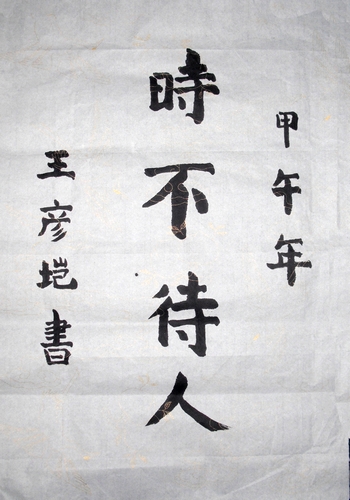 甲午年
時不待人
王彦垲書